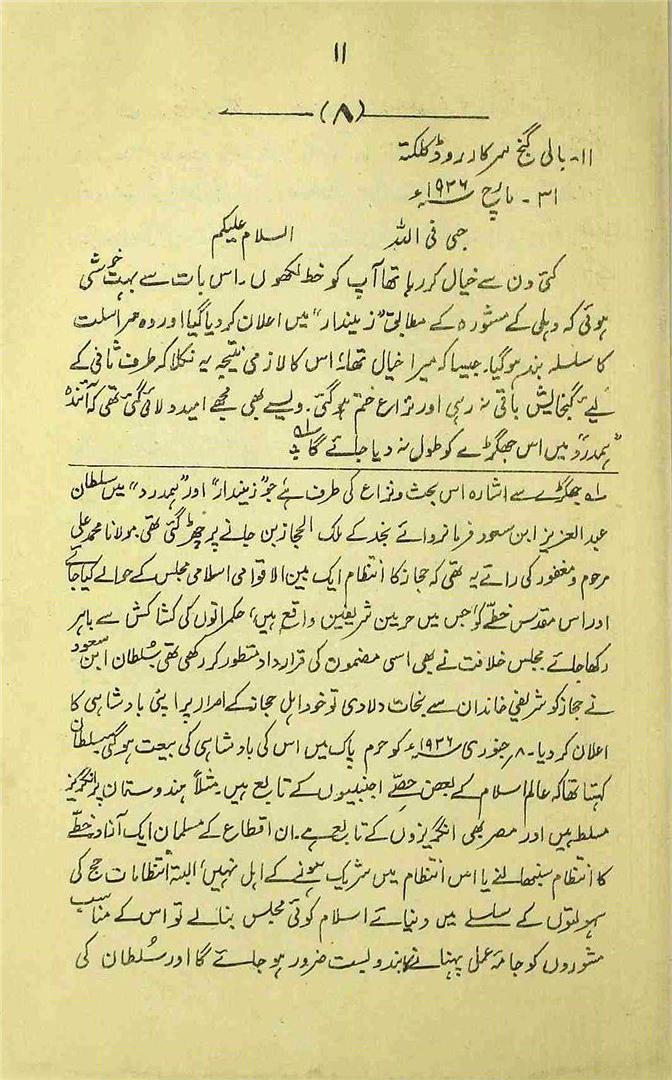 ۱۱
(۸)
۱۱- بالی گنج سرکلر روڈ کلکتہ
۳۱ - مارچ ۱۹۲۶ء
حبی فی اللہ السلام علیکم
کئی دن سے خیال کر رہا تھا آپ کو خط لکھوں ۔ اس بات سے بہت خوشی
ہوئی کہ دہلی کے مشورہ کے مطابق "زمیندار" میں اعلان کر دیا گیا اور وہ مراسلت
کا سلسلہ بند ہو گیا۔ جیسا کہ میرا خیال تھا، اس کا لازمی نتیجہ یہ نکلا کہ طرف ثانی کے
لیے گنجایش باقی نہ رہی اور نزاع ختم ہو گئی۔ ویسے بھی مجھے امید دلائی گئی تھی کہ آئندہ
"ہمدرد" میں اس جھگڑے کو طول نہ دیا جائے گا ۱؎
۱؎ جھگڑے سے اشارہ اس بحث و نزاع کی طرف ہے جو "زمیندار" اور "ہمدرد" میں سلطان
عبدالعزیز ابن سعود فرمانروائے نجد کے ملک الحجاز بن جانے پر چھڑ گئی تھی۔ مولانا محمد علی
مرحوم و مغفور کی رائے یہ تھی کہ حجاز کا انتظام ایک بین الاقوامی اسلامی مجلس کے حوالے کیا جائے
اور اس مقدس خطّے کو، جس میں حرمین شریفین واقع ہیں، حکمرانوں کی کشاکش سے باہر
رکھا جائے مجلس خلافت نے بھی اسی مضمون کی قرارداد منظور کر رکھی تھی۔ سُلطان ابن سعود
نے حجاز کو شریفی خاندان سے نجات دلا دی تو خود اہل حجاز کے اصرار پر اپنی بادشاہی کا
اعلان کر دیا۔ ۸؍ جنوری ۱۹۲۶ء کو حرم پاک میں اس کی بادشاہی کی بیعت ہو گئی۔ سلطان
کہتا تھا کہ عالم اسلام کے بعض حصّے اجنبیوں کے تابع ہیں۔ مثلاً ہندوستان پر انگریز
مسلط ہیں اور مصر بھی انگریزوں کے تابع ہے۔ ان اقطاع کے مسلمان ایک آزاد خطّے
کا انتظام سنبھالنے یا اس انتظام میں شریک ہونے کے اہل نہیں، البتہ انتظامات حج کی
سہولتوں کے سلسلے میں دنیائے اسلام کوئی مجلس بنالے تو اس کے مناسب
مشوروں کو جامۂ عمل پہنانے کا بندوبست ضرور ہو جائے گا اور سُلطان کی